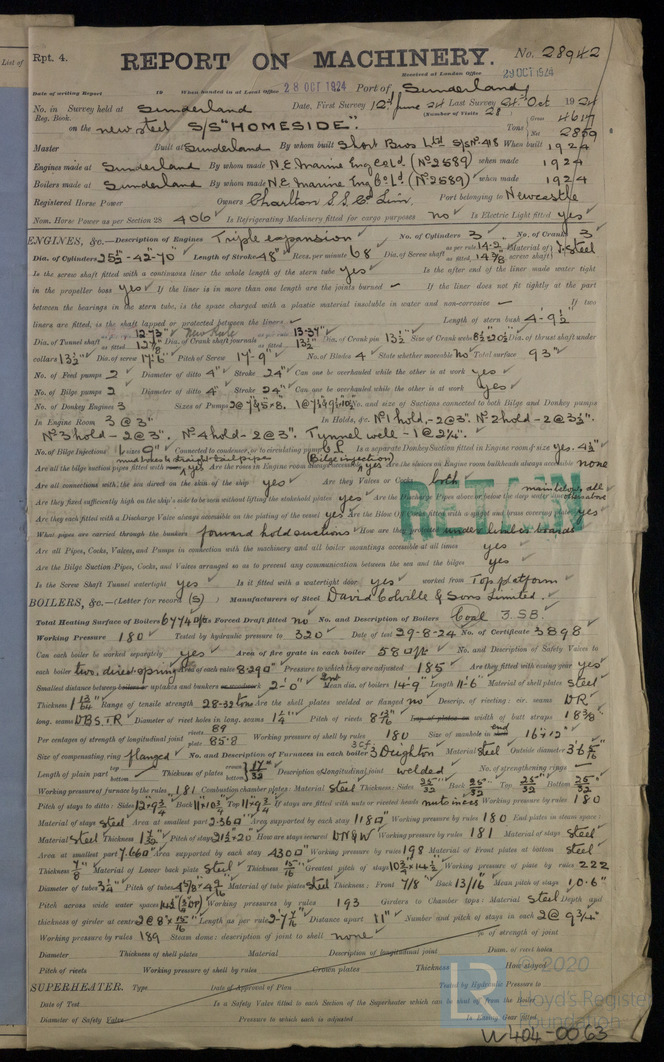 List of
Rpt. 4.
REPORT ON MACHINERY. No. 28942
Received at London Office 29 OCT 1924
Date of writing Report 19 When handed in at Local Office 28 OCT 1924 Port of Sunderland
No. in Survey held at Sunderland Date, First Survey 12th June 24 Last Survey 24th Oct 1924
Reg. Book. (Number of Visits 28)
on the new steel S/S "HOMESIDE". Tons Gross 4617 Net 2859
Master Built at Sunderland By whom built Short Bros Ltd S/S No 418 When built 1924
Engines made at Sunderland By whom made N.E. Marine Eng Co Ld (No 2589) when made 1924
Boilers made at Sunderland By whom made N.E. Marine Eng Co Ld (No 2589) when made 1924
Registered Horse Power Owners Charlton S.S. Co Lim. Port belonging to Newcastle
Nom. Horse Power as per Section 28 406 Is Refrigerating Machinery fitted for cargo purposes no Is Electric Light fitted yes
ENGINES, &c.—Description of Engines Triple expansion No. of Cylinders 3 No. of Cranks 3
Dia. of Cylinders 25½"-42-70" Length of Stroke 48" Revs. per minute 68 Dia. of Screw shaft as per rule 14.2 as fitted 14 7/8 Material of screw shaft I. Steel
Is the screw shaft fitted with a continuous liner the whole length of the stern tube yes Is the after end of the liner made water tight
in the propeller boss yes If the liner is in more than one length are the joints burned — If the liner does not fit tightly at the part
between the bearings in the stern tube, is the space charged with a plastic material insoluble in water and non-corrosive — If two
liners are fitted, is the shaft lapped or protected between the liners Length of stern bush 4'-9½"
Dia. of Tunnel shaft as per rule 12.73" as fitted 12 7/8 New Rule Dia. of Crank shaft journals as per rule 13.37" as fitted 13½" Dia. of Crank pin 13½" Size of Crank webs 8½ x 20½ Dia. of thrust shaft under
collars 13½" Dia. of screw 17'-6" Pitch of Screw 17'-9" No. of Blades 4 State whether moveable no Total surface 93"
No. of Feed pumps 2 Diameter of ditto 4" Stroke 24" Can one be overhauled while the other is at work yes
No. of Bilge pumps 2 Diameter of ditto 4" Stroke 24" Can one be overhauled while the other is at work yes
No. of Donkey Engines 3 Sizes of Pumps No. and size of Suctions connected to both Bilge and Donkey pumps
In Engine Room 3 @ 3" In Holds, &c. No 1 hold, - 2 @ 3". No 2 hold - 2 @ 3½".
No 3 hold - 2 @ 3". No 4 hold - 2 @ 3". Tunnel well - 1 @ 2½".
No. of Bilge Injections 1 sizes 9" Connected to condenser, or to circulating pump Is a separate Donkey Suction fitted in Engine room & size yes. 4½"
Are all the bilge suction pipes fitted with yes Are the roses in Engine room yes Are the sluices on Engine room bulkheads always accessible none
Are all connections with the sea direct on the skin of the ship yes Are they Valves or Cocks both
Are they fixed sufficiently high on the ship's side to be seen without lifting the stokehold plates yes Are the Pipes above or below the deep water line
Are they each fitted with a Discharge Valve always accessible on the plating of the vessel yes Are the Blow Off yes
What pipes are carried through the bunkers forward hold suctions How are they protected under limber boards
Are all Pipes, Cocks, Valves, and Pumps in connection with the machinery and all boiler mountings accessible at all times yes
Are the Bilge Suction Pipes, Cocks, and Valves arranged so as to prevent any communication between the sea and the bilges yes
Is the Screw Shaft Tunnel watertight yes Is it fitted with a watertight door yes worked from Top platform
RETAIN
BOILERS, &c.—(Letter for record (S) Manufacturers of Steel David Colville & Sons Limited.
Total Heating Surface of Boilers 6774 Is Forced Draft fitted no No. and Description of Boilers Coal 3 SB.
Working Pressure 180 Tested by hydraulic pressure to 320 Date of test 29-8-24 No. of Certificate 3898
Can each boiler be worked separately yes Area of fire grate in each boiler 58 No. and Description of Safety Valves to
each boiler two direct spring Area of each valve 8.29 Pressure to which they are adjusted 185 Are they fitted with easing gear yes
Smallest distance between boilers or uptakes and bunkers or woodwork 2'-0" Mean dia. of boilers 14'-9" Length 11'-6" Material of shell plates Steel
Thickness 1 13/64 Range of tensile strength 28-32 tons Are the shell plates welded or flanged no Descrip. of riveting: cir. seams DR
long. seams DBS.TR Diameter of rivet holes in long. seams 1¼" Pitch of rivets 8 13/16 Lap of plates or width of butt straps 18 3/8"
Per centages of strength of longitudinal joint rivets 89 plate 85.8 Working pressure of shell by rules 180 Size of manhole in end 16" x 12"
Size of compensating ring flanged No. and Description of Furnaces in each boiler 3 Deighton Material Steel Outside diameter 3'6 5/16"
Length of plain part top bottom Thickness of plates crown bottom 17/32 Description of longitudinal joint welded No. of strengthening rings
Working pressure of furnace by the rules 181 Combustion chamber plates: Material Steel Thickness: Sides 25/32 Back 25/32 Top 25/32 Bottom 25/32
Pitch of stays to ditto: Sides 12 x 9¾ Back 11 x 10¾ Top 11 x 9¾ If stays are fitted with nuts or riveted heads nuts inces Working pressure by rules 180
Material of stays Steel Area at smallest part 2.36 Area supported by each stay 118 Working pressure by rules 180 End plates in steam space:
Material Steel Thickness 1 7/32 Pitch of stays 21½ x 20 How are stays secured DN&W Working pressure by rules 181 Material of stays Steel
Area at smallest part 7.66 Area supported by each stay 430 Working pressure by rules 198 Material of Front plates at bottom Steel
Thickness 7/8 Material of Lower back plate Steel Thickness 15/16 Greatest pitch of stays 10¾ x 14½ Working pressure of plate by rules 222
Diameter of tubes 3¼ Pitch of tubes Material of tube plates Steel Thickness: Front 7/8 Back 13/16 Mean pitch of stays 10.6"
Pitch across wide water spaces Working pressures by rules 193 Girders to Chamber tops: Material Steel Depth and
thickness of girder at centre 2 @ 8" x 15/16 Length as per rule 2-7 7/16 Distance apart 11" Number and pitch of stays in each 2 @ 9¾"
Working pressure by rules 189 Steam dome: description of joint to shell none % of strength of joint
Diameter Thickness of shell plates Material Description of longitudinal joint Diam. of rivet holes
Pitch of rivets Working pressure of shell by rules Crown plates Thickness How stayed
SUPERHEATER. Type Date of Approval of Plan Tested by Hydraulic Pressure to
Date of Test Is a Safety Valve fitted to each Section of the Superheater which can be shut off from the Boiler
Diameter of Safety Valve Pressure to which each is adjusted Is Easing Gear fitted
© 2020
LR
Lloyd's Register
Foundation
W404-0063